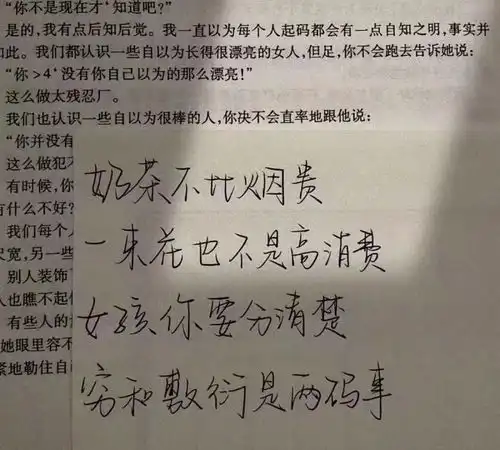 “你不是现在才‘知道吧?”
是的,我有点后知后觉。我一直以为每个人起码都会有一点自知之明,事实并
如此。我们都认识一些自以为长得很漂亮的女人,但足,你不会跑去告诉她说:
“你>4‘没有你自己以为的那么漂亮!”
这么做太残忍厂。
我们也认识一些自以为很棒的人,你决不会直率地跟他说:
“你并没有
这么做犯
有时候,你
有什么不好?
我们每个
宽,另一些
别人装饰
人也瞧不起
有些人的
她眼里容不
紧地勒住自
奶茶不比烟贵
一束花也不是高消费
女孩你要分清楚
穷和敷衍是两码事